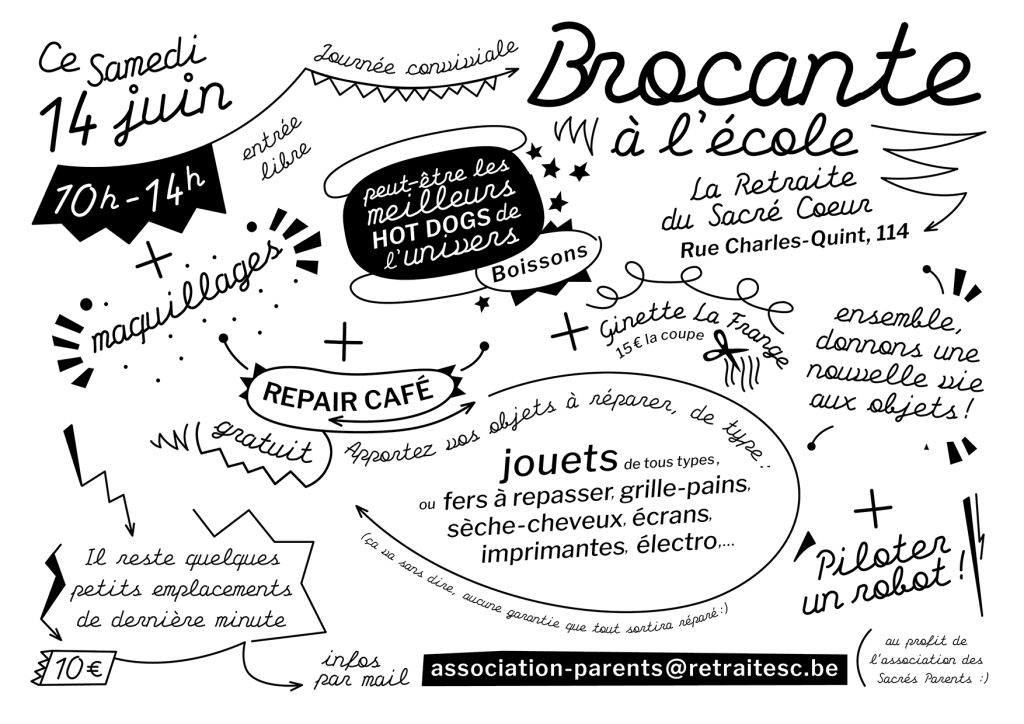 Ce Samedi
14 juin
10h-14h
Journée conviviale
entrée
libre
Brocante
à l'école
La Retraite
du Sacré Coeur
Rue Charles-Quint, 114
peut-être les
meilleurs
HOT DOGS de
l'univers
Boissons
+
maquillages
+
REPAIR CAFÉ
gratuit
+
Ginette La Frange
15€ la coupe
ensemble,
donnons une
nouvelle vie
aux objets!
Apportez vos objets à réparer, de type:
jouets de tous types,
ou fers à repasser, grille-pains,
sèche-cheveux, écrans,
imprimantes, électro,...
(ça va sans dire, aucune garantie que tout sortira réparé:)
+
Piloter
un robot!
Il reste quelques
petits emplacements
de dernière minute
10€
infos
par mail
association-parents@retraitesc.be
au profit de
l'association des
Sacrés Parents :)